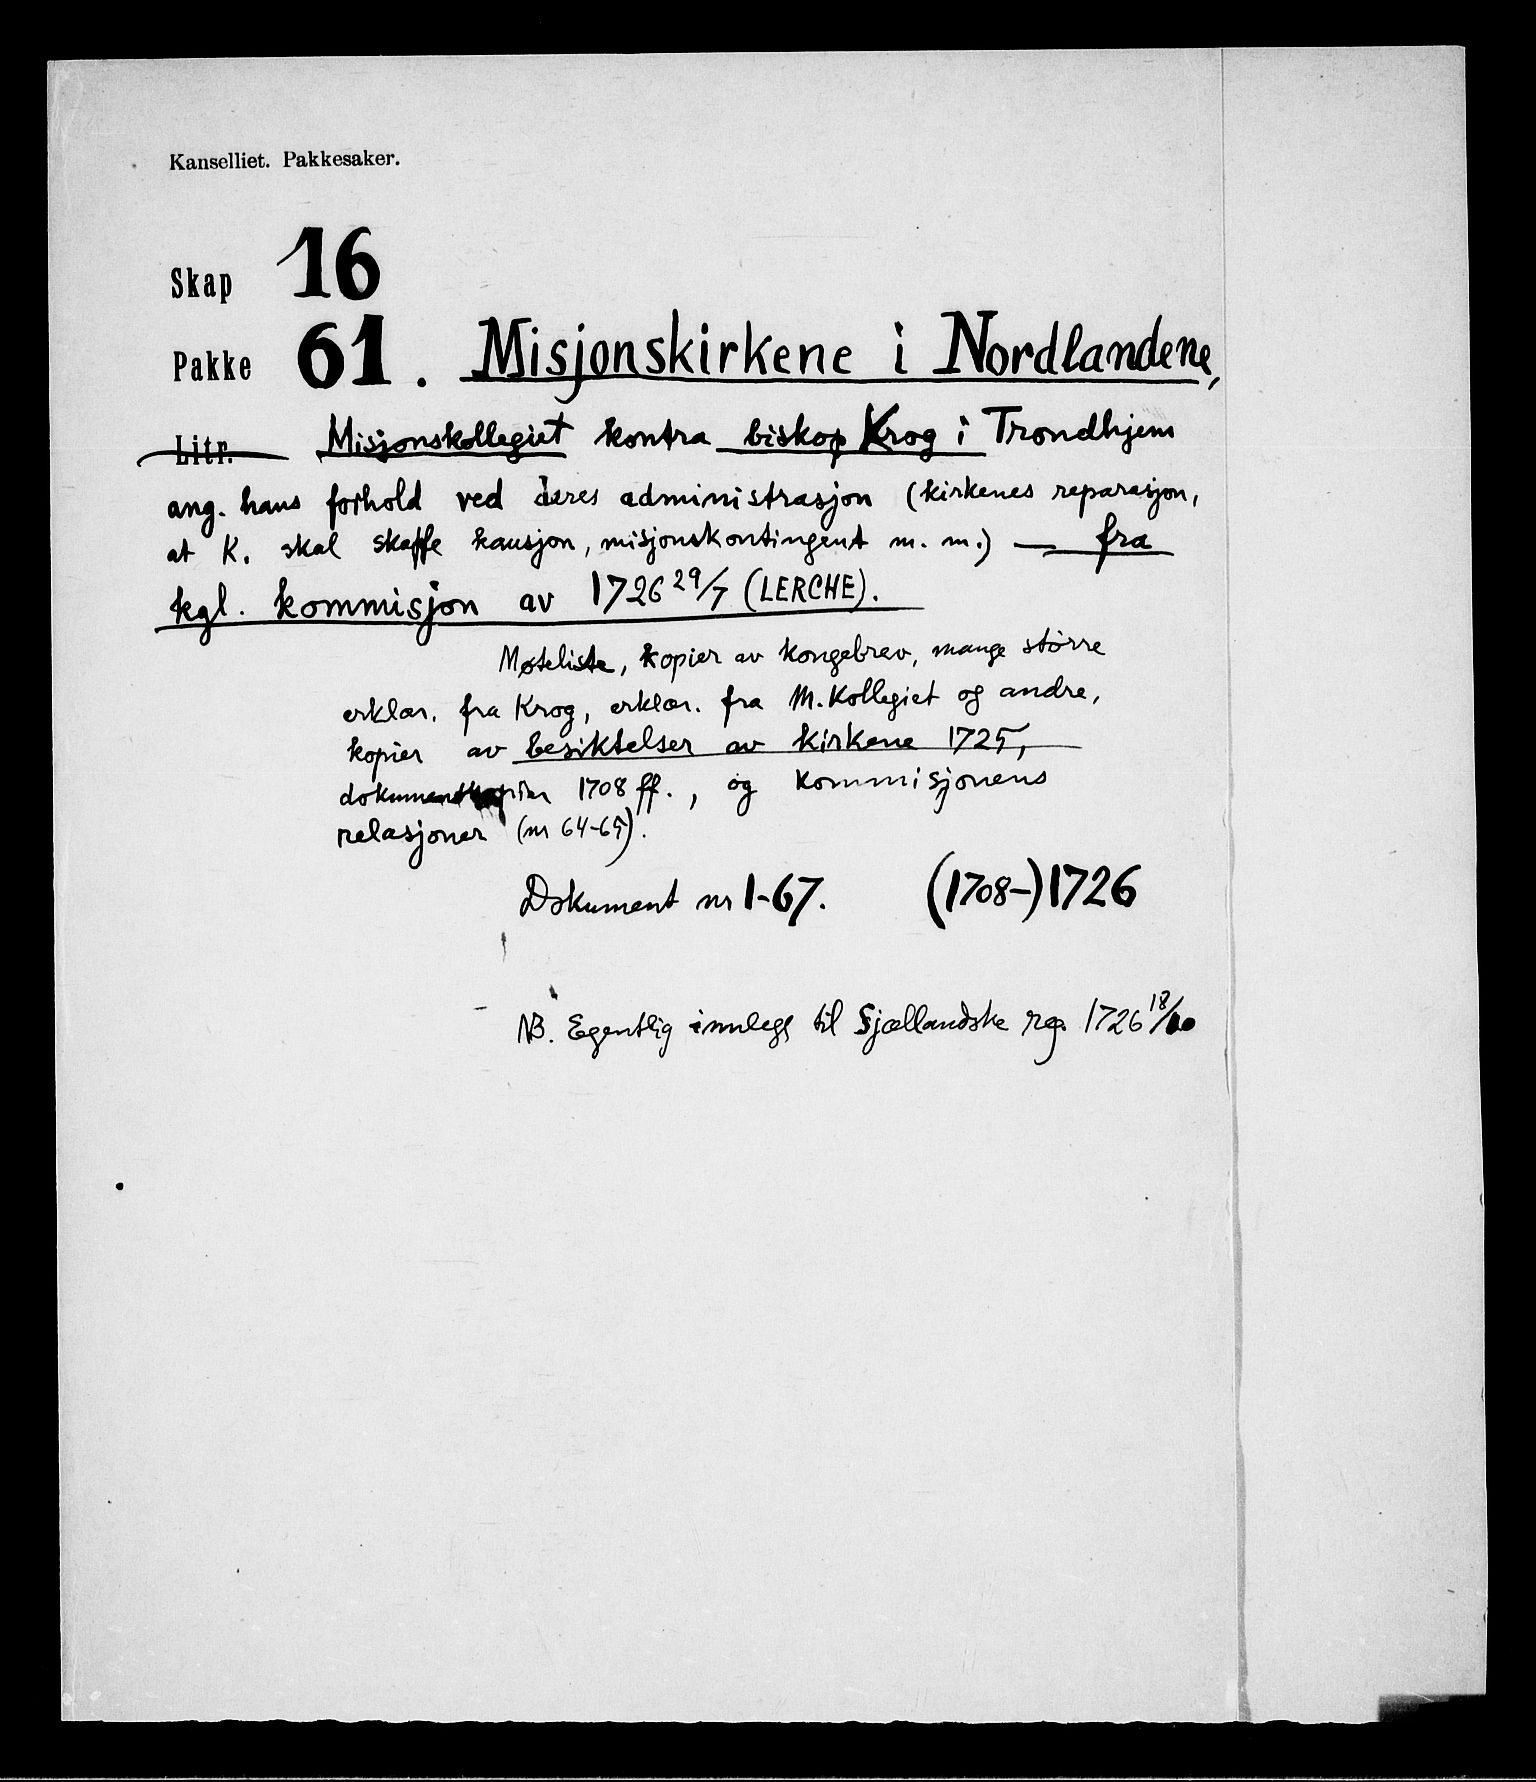 Kanselliet. Pakkesaker.
Skap 16
Pakke 61. Misjonskirkene i Nordlandene,
Litr. Misjonskollegiet kontra biskop Krog i Trondhjem
ang. hans forhold ved deres administrasjon (kirkenes reparasjon,
at K. skal skaffe kausjon, misjonskontingent m. m.) — fra
kgl. kommisjon av 1726 29/7 (LERCHE).
Møteliste, kopier av kongebrev, mange større
erklær. fra Krog, erklær. fra M. Kollegiet og andre,
kopier av besiktelser av kirkene 1725,
dokumentkopier 1708 ff., og kommisjonens
relasjoner (nr 64-65).
Dokument nr 1-67. (1708-) 1726
NB. Egentlig innlegg til Sjællandske reg. 1726 18/10